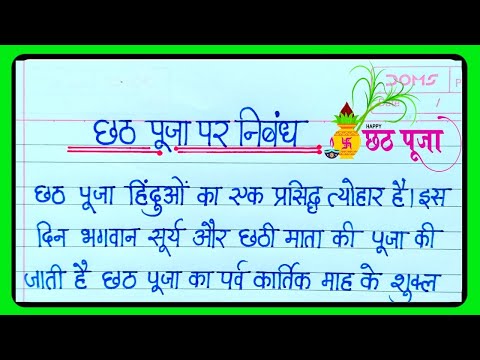 DOMS
छठ पूजा पर निबंध
HAPPY
छठ पूजा
छठ पूजा हिंदुओं का एक प्रसिद्ध त्योहार है। इस
दिन भगवान सूर्य और छठी माता की पूजा की
जाती है छठ पूजा का पर्व कार्तिक माह के शुक्ल